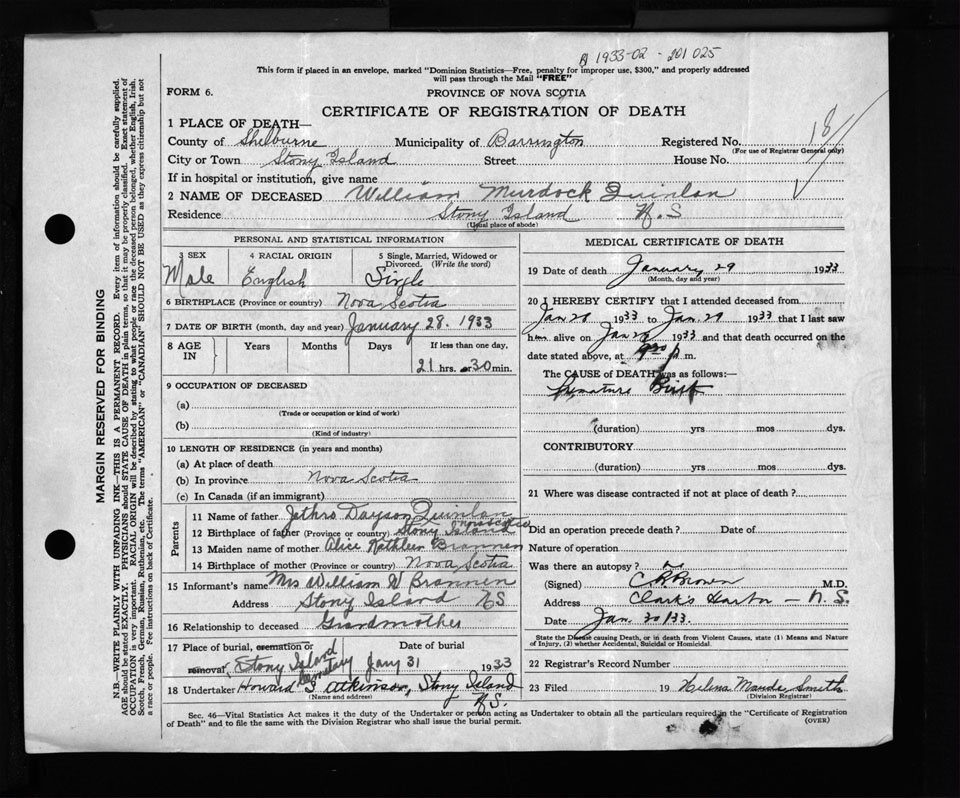 1933-02-201025
This form if placed in an envelope, marked "Dominion Statistics—Free, penalty for improper use, $300," and properly addressed
will pass through the Mail "FREE"
FORM 6.
PROVINCE OF NOVA SCOTIA
CERTIFICATE OF REGISTRATION OF DEATH
1 PLACE OF DEATH—
County of Shelburne Municipality of Barrington Registered No. 18
(For use of Registrar General only)
City or Town Stony Island Street House No.
If in hospital or institution, give name
2 NAME OF DECEASED William Murdock Quinlan
Residence Stony Island N.S
(Usual place of abode)
MARGIN RESERVED FOR BINDING
N.B. WRITE PLAINLY WITH UNFADING INK—THIS IS A PERMANENT RECORD. Every item of information should be carefully supplied.
AGE should be stated EXACTLY. PHYSICIANS should STATE CAUSE OF DEATH in plain terms, so that it may be properly classified. Exact statement of
OCCUPATION is very important. RACIAL ORIGIN will be described by stating to what people or race the deceased person belonged, whether English, Irish,
Scotch, French, German, Russian, Ruthenian, etc. The terms "AMERICAN" or "CANADIAN" SHOULD NOT BE USED as they express citizenship but not
a race or people. See instructions on back of Certificate.
PERSONAL AND STATISTICAL INFORMATION
3 SEX 4 RACIAL ORIGIN 5 Single, Married, Widowed or
Divorced. (Write the word)
Male English Single
6 BIRTHPLACE (Province or country) Nova Scotia
7 DATE OF BIRTH (month, day and year) January 28. 1933
8 AGE IN Years Months Days If less than one day,
21 hrs. or 30 min.
9 OCCUPATION OF DECEASED
(a)
(Trade or occupation or kind of work)
(b)
(Kind of industry)
10 LENGTH OF RESIDENCE (in years and months)
(a) At place of death
(b) In province Nova Scotia
(c) In Canada (if an immigrant)
Parents
11 Name of father Jethro Dayson Quinlan
12 Birthplace of father (Province or country) Stony Island Nova Scotia
13 Maiden name of mother Alice Kathleen Brannen
14 Birthplace of mother (Province or country) Nova Scotia
15 Informant's name Mrs William W Brannen
Address Stony Island NS
16 Relationship to deceased Grandmother
17 Place of burial, cremation or Date of burial
removal, Stony Island Cemetery Jany 31 1933
18 Undertaker Howard S Atkinson, Stony Island
(Name and address) N.S.
MEDICAL CERTIFICATE OF DEATH
19 Date of death January 29 1933
(Month, day and year)
20 I HEREBY CERTIFY that I attended deceased from
Jan 1933 to Jan 29 1933 that I last saw
him alive on Jan 1933 and that death occurred on the
date stated above, at 9 30 p m.
The CAUSE OF DEATH was as follows:—
Premature Birth
(duration) yrs mos dys.
CONTRIBUTORY
(duration) yrs mos dys.
21 Where was disease contracted if not at place of death?
Did an operation precede death? Date of
Nature of operation
Was there an autopsy? no
(Signed) Brown M.D.
Address Clark's Harbor — N.S.
Date Jan. 30/33.
State the Disease causing Death, or in death from Violent Causes, state (1) Means and Nature
of Injury, (2) whether Accidental, Suicidal or Homicidal.
22 Registrar's Record Number
23 Filed 19 Helena Maude Smith
(Division Registrar)
Sec. 46—Vital Statistics Act makes it the duty of the Undertaker or person acting as Undertaker to obtain all the particulars required in the "Certificate of Registration
of Death" and to file the same with the Division Registrar who shall issue the burial permit. (OVER)